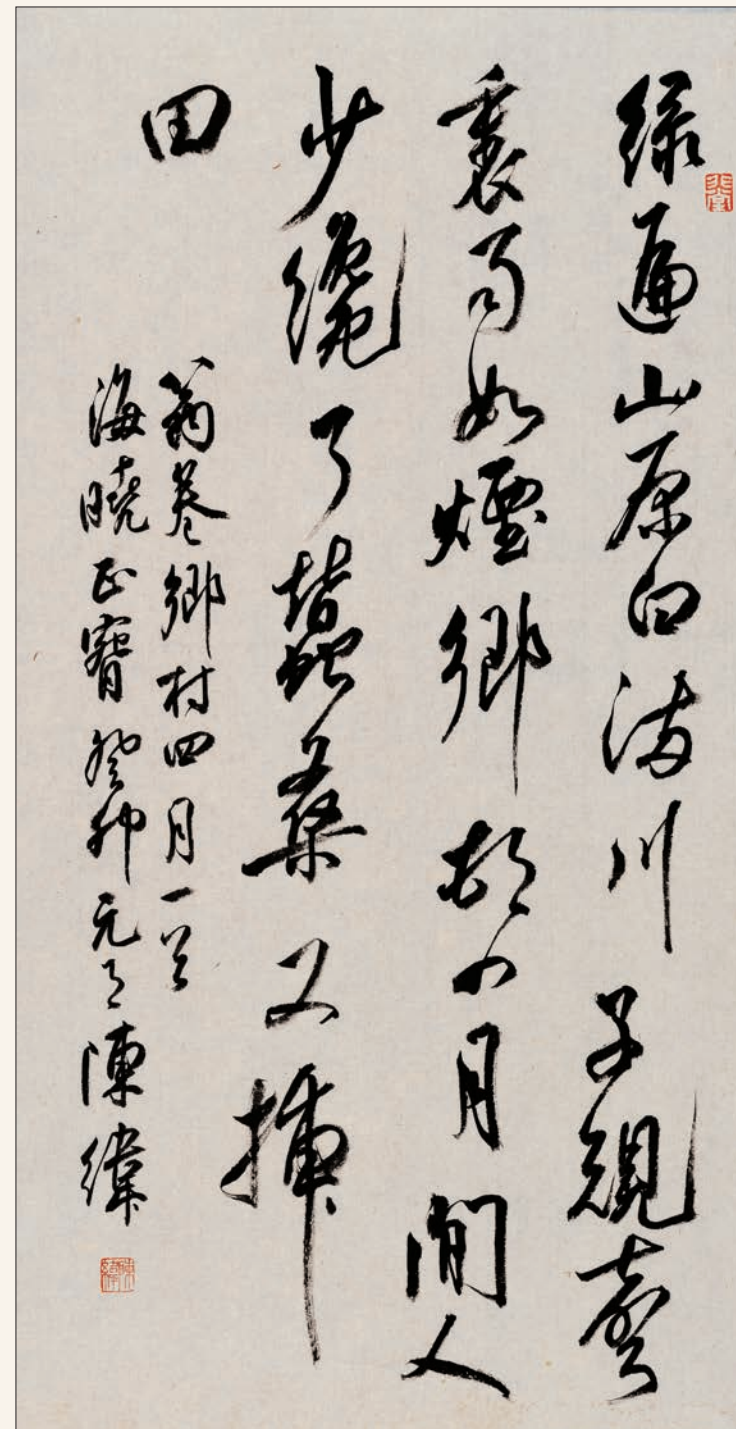 綠遍山原白滿川子規聲
裏雨如煙鄉邨四月閒人
少纔了蠶桑又插
田
翁卷鄉村四月一首
海曉正 癸卯元月陳緯